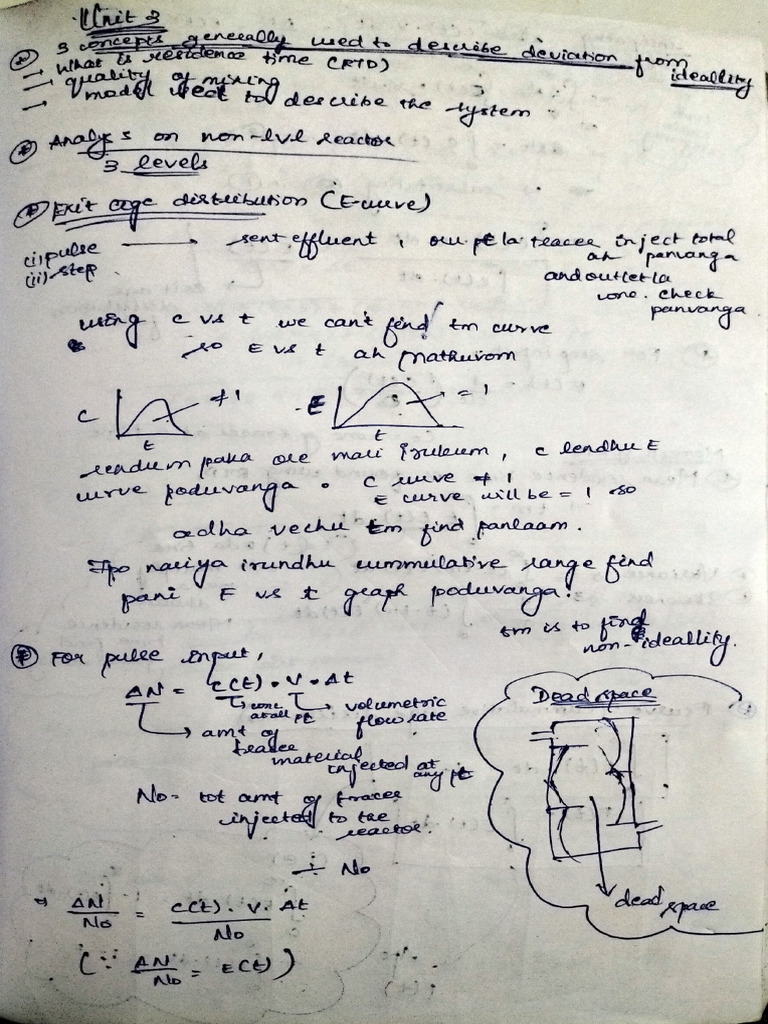 Unit 3
* 3 concepts generally used to describe deviation from ideallity
→ What is residence time (RTD)
→ quality of mixing
→ model used to describe the system
* Analys s on non-lvl reactor
3 levels
* Exit age distribution (E-curve)
(i) pulse → sent effluent, oru pt la tracer inject total
ah panvanga
(ii) step and outlet la
conc. check
panvanga
using c vs t we can't find tm curve
so E vs t ah mathurom
C ≠1 E =1
t t
rendum paka ore mari irukum, c lendhu E
curve poduvanga. C curve ≠ 1
E curve will be = 1 so
adha vechu tm find panlaam.
Ipo nariya irundhu cummulative range find
pani E vs t graph poduvanga.
tm is to find
non-ideallity.
* For pulse input,
ΔN = C(t) . V . Δt
conc at all pt
volumetric flow rate
amt of
tracer
material
injected at
any pt
No- tot amt of tracer
injected to the
reactor.
÷ No
→ ΔN/No = C(t) . V . Δt / No
(∵ ΔN/No = E(t))
Dead space
dead space